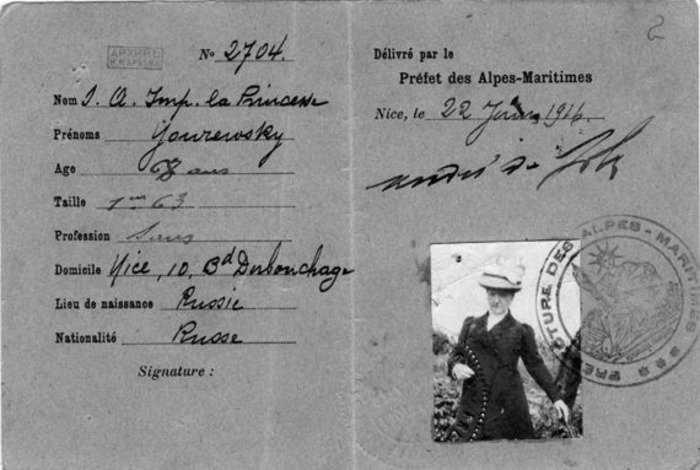 АРХИВЪ
№ 2704.
Nom S. A. Imp. la Princesse
Prénoms Yourewsky
Age ans
Taille 1m 63
Profession Sans
Domicile Nice, 10, Bd Dubouchage
Lieu de naissance Russie
Nationalité Russe
Signature :
2
Délivré par le
Préfet des Alpes-Maritimes
Nice, le 22 1916.
andré de
PRÉFECTURE DES ALPES-MARI